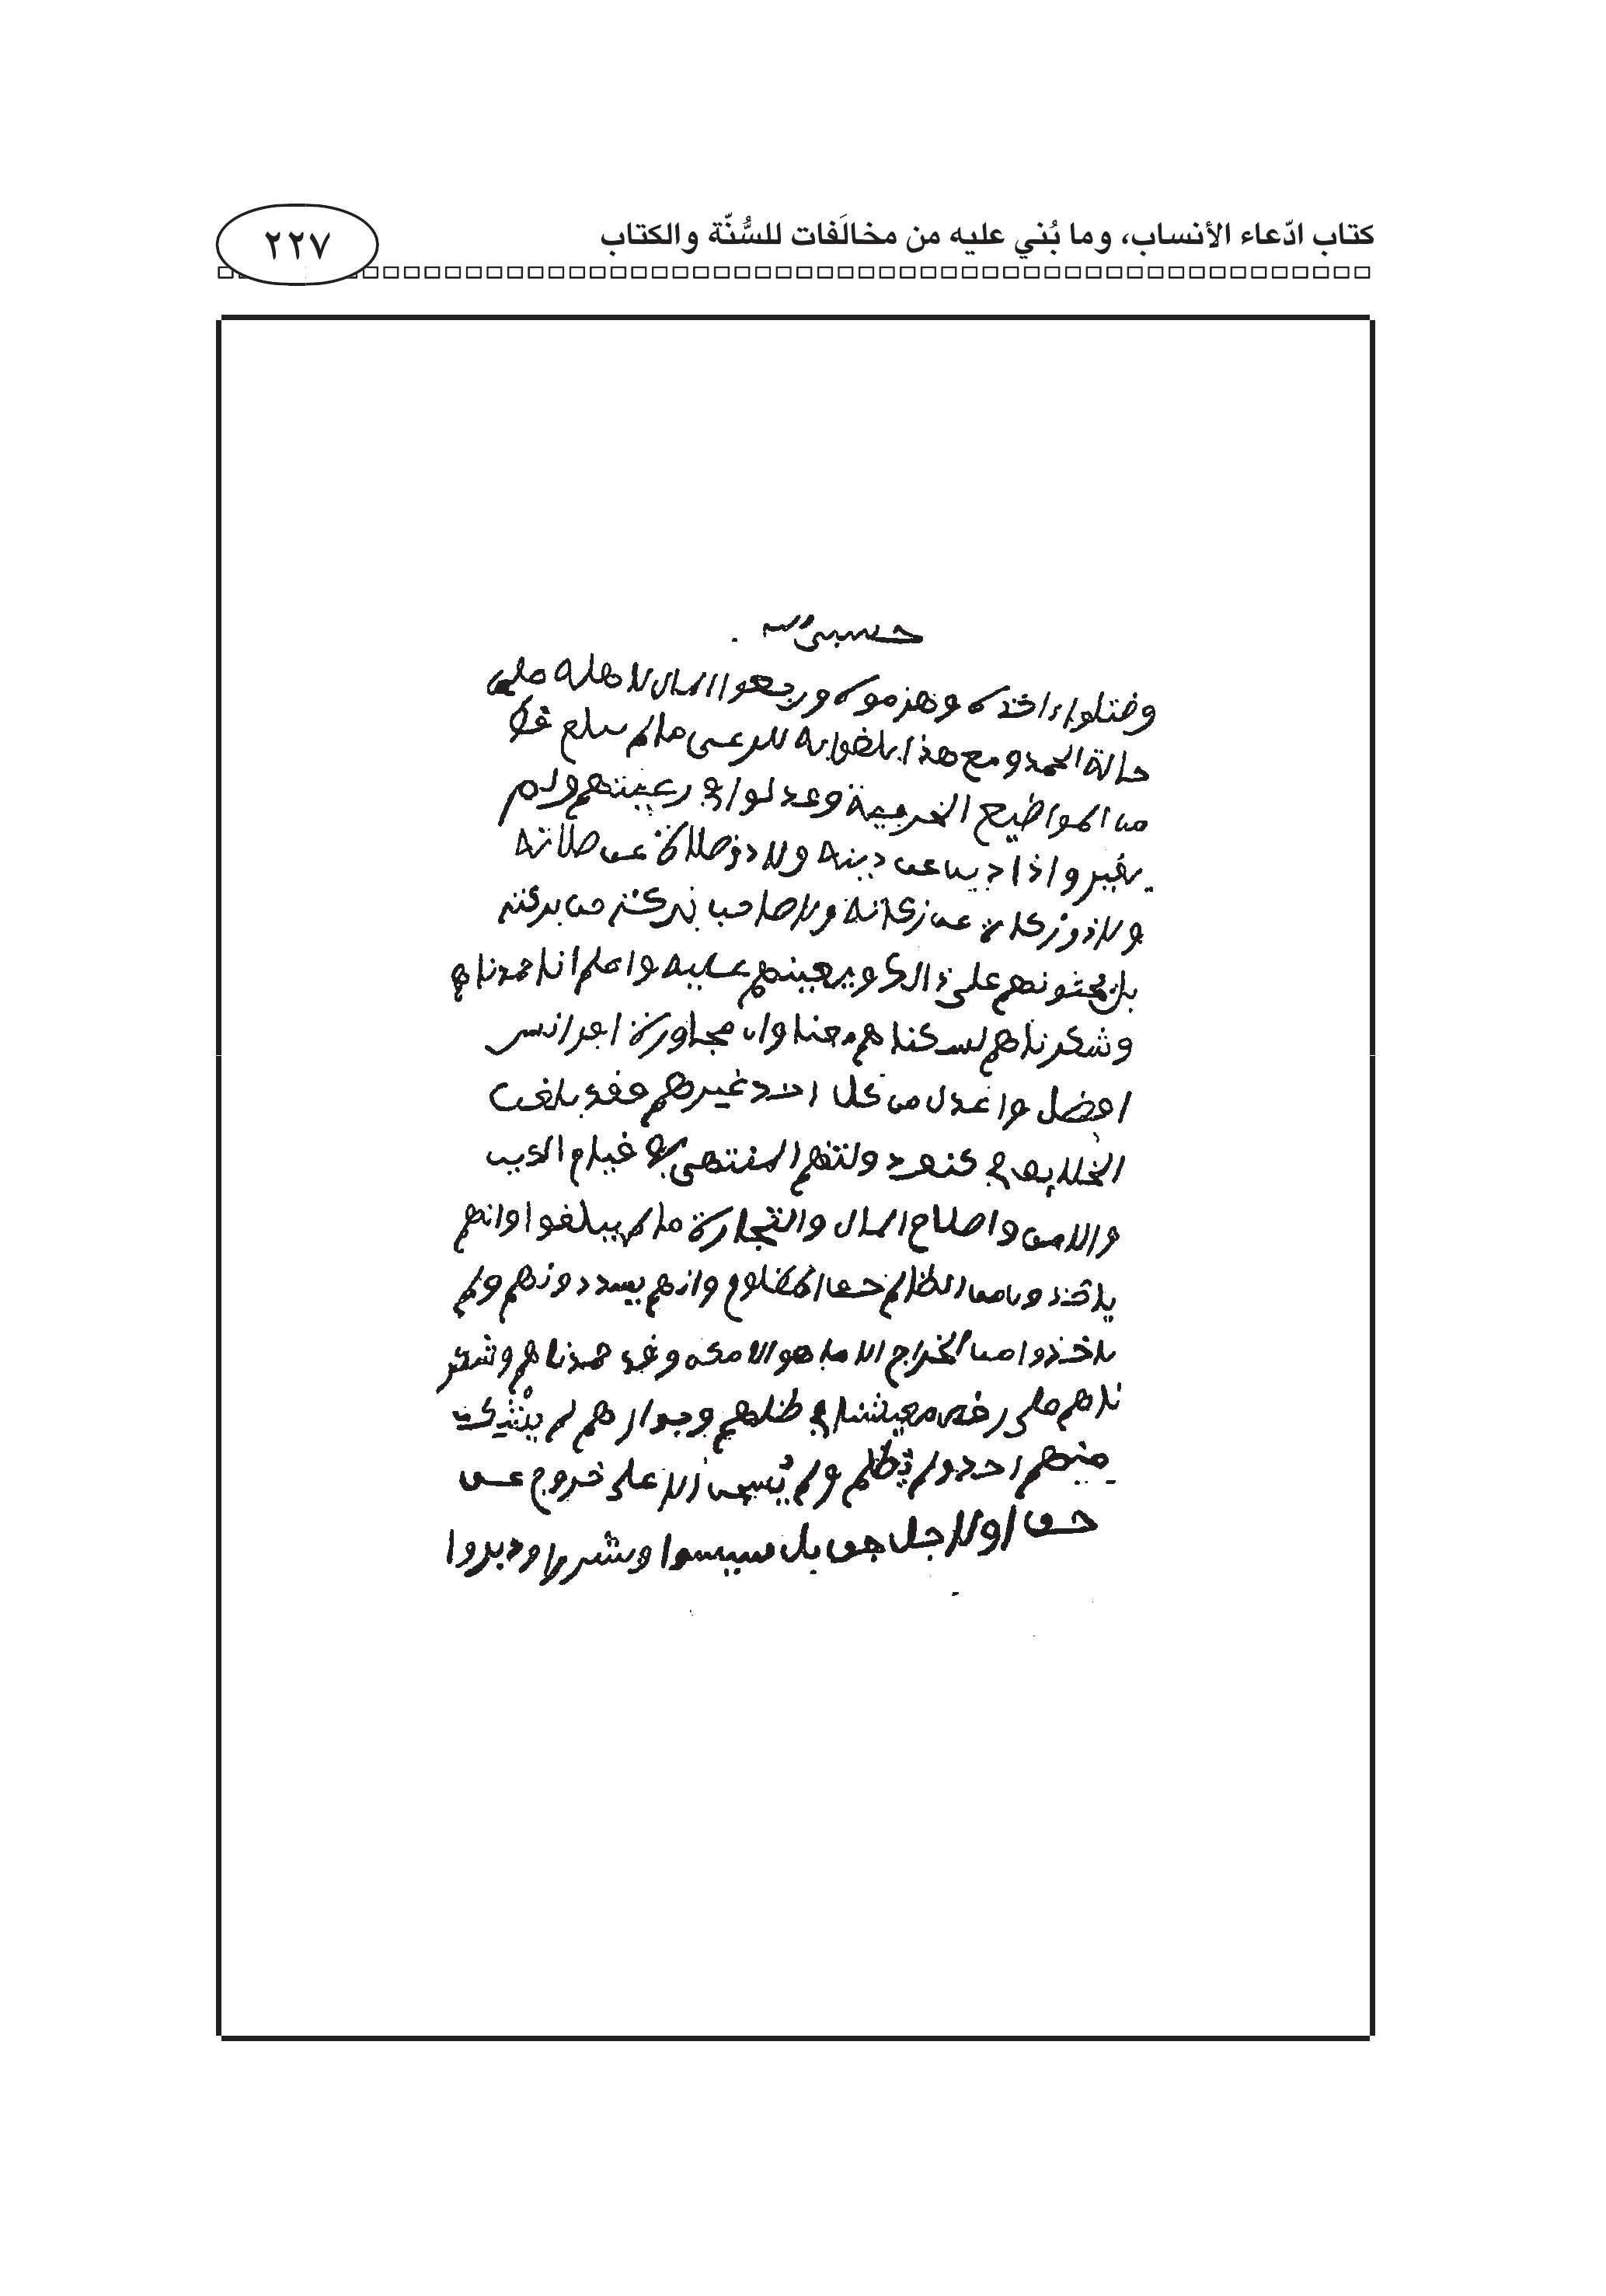 كتاب ادّعاء الأنساب، وما بُني عليه من مخالَفات للسُّنّة والكتاب
٢٢٧
حسبي الله
وهزموه ورجعوا المال لاهله
حالة الحمد ومع هذا بلغوا به للرعى ما لم يبلغ
من المواضيع الخربية وعدلوا في رعيتهم ولم
يغير واذا دين عن دينه ولا ذو صلاة عن صلاته
ولا ذو زكاة عن زكاته ولا صاحب
بل يحثونهم على ذالك ويعينهم عليه واعلم انا حمدناهم
وشكرناهم لسكناهم معنا وان مجاورة افرانس
افضل واعدل من كل احد غيرهم فقد بلغت
الخلايق في ولتفهم المنتهى في قيام الدين
والامن واصلاح المال والتجارة ما لم يبلغوا وانهم
ياخذون من الظالم حق المظلوم وانهم ولم
ياخذوا من الخراج الا ما هو الامكن وقد حمدناهم وشكر
ناهم على معيشنا في ظلهم وجوارهم لم
منهم احد ولم يظلم ولم يسجن الا على خروج عن
حق او لاجل حق بل